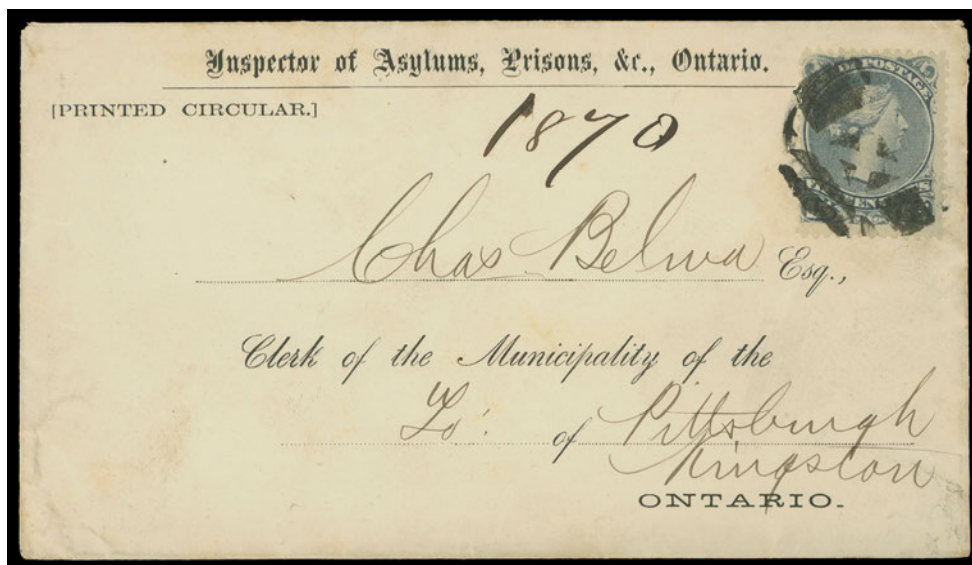 Inspector of Asylums, Prisons, &c., Ontario.
[PRINTED CIRCULAR.]
1870
POSTAGE
Chas Belwa Esq.,
Clerk of the Municipality of the
To. of Pittsburgh
Kingston
ONTARIO.